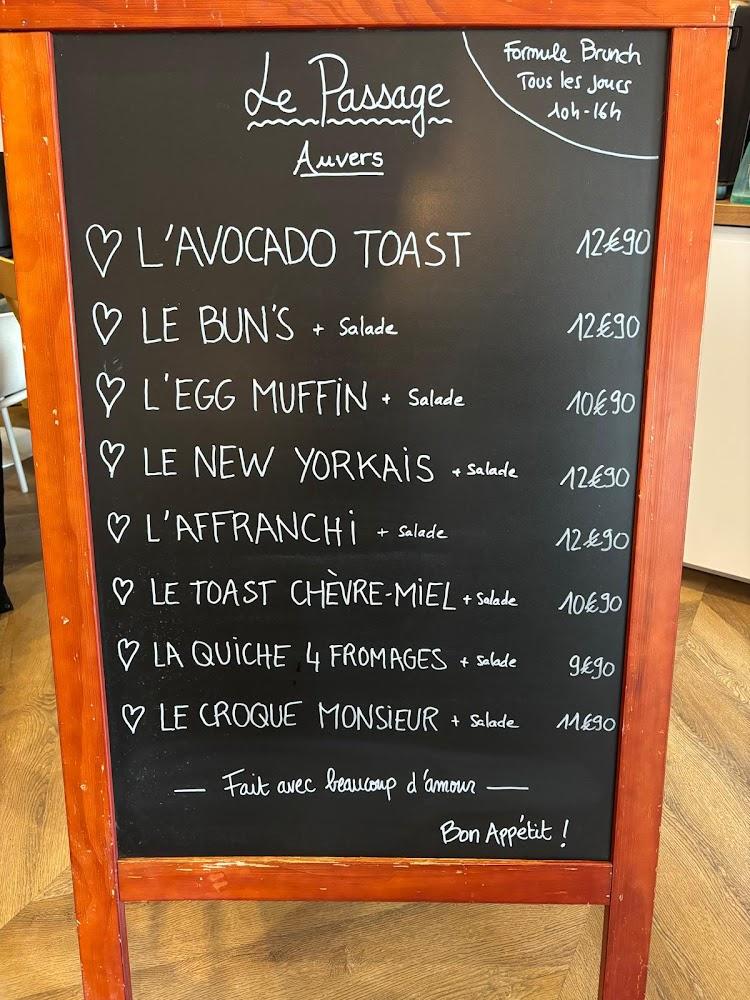 Le Passage
Auvers
Formule Brunch
Tous les Jours
10h-16h
L'AVOCADO TOAST 12€90
LE BUN'S + Salade 12€90
L'EGG MUFFiN + Salade 10€90
LE NEW YORKAiS + Salade 12€90
L'AFFRANCHi + Salade 12€90
LE TOAST CHÈVRE-MiEL + Salade 10€90
LA QUiCHE 4 FROMAGES + Salade 9€90
LE CROQUE MONSiEUR + Salade 11€90
— Fait avec beaucoup d'amour —
Bon Appétit !